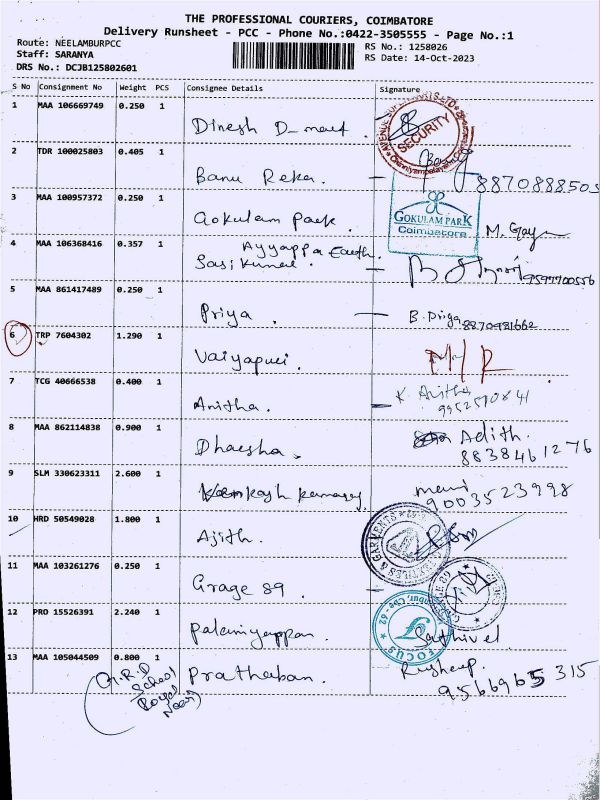 THE PROFESSIONAL COURIERS, COIMBATORE
Delivery Runsheet - PCC - Phone No.:0422-3505555 - Page No.:1
Route: NEELAMBURPCC
Staff: SARANYA
DRS No.: DCJB125802601
RS No.: 1258026
RS Date: 14-Oct-2023
S No Consignment No Weight PCS Consignee Details Signature
1 MAA 106669749 0.250 1 Dinesh
SECURITY
2 TDR 100025803 0.405 1 Banu Reka. 8870888505
3 MAA 100957372 0.250 1 Gokulam Park.
GOKULAM PARK
Coimbatore
4 MAA 106368416 0.357 1 Ayyappa
Sasi Kumar. 9597700556
5 MAA 861417489 0.250 1 Priya. B. Priya 8870981662
6 TRP 7604302 1.290 1 Vaiyapuri.
7 TCG 40666538 0.400 1 Anitha. K. Anitha
9952590841
8 MAA 862114838 0.900 1 Dharsha. Adith.
8838461276
9 SLM 330623311 2.600 1 mani
9003523998
10 HRD 50549028 1.800 1 Ajith.
11 MAA 103261276 0.250 1 Grage 89.
12 PRO 15526391 2.240 1 Palaniyappan. Sathivel
FOCUS
13 MAA 105044509 0.800 1 Prathaban.
9566965315
G.R.D
School
Royal